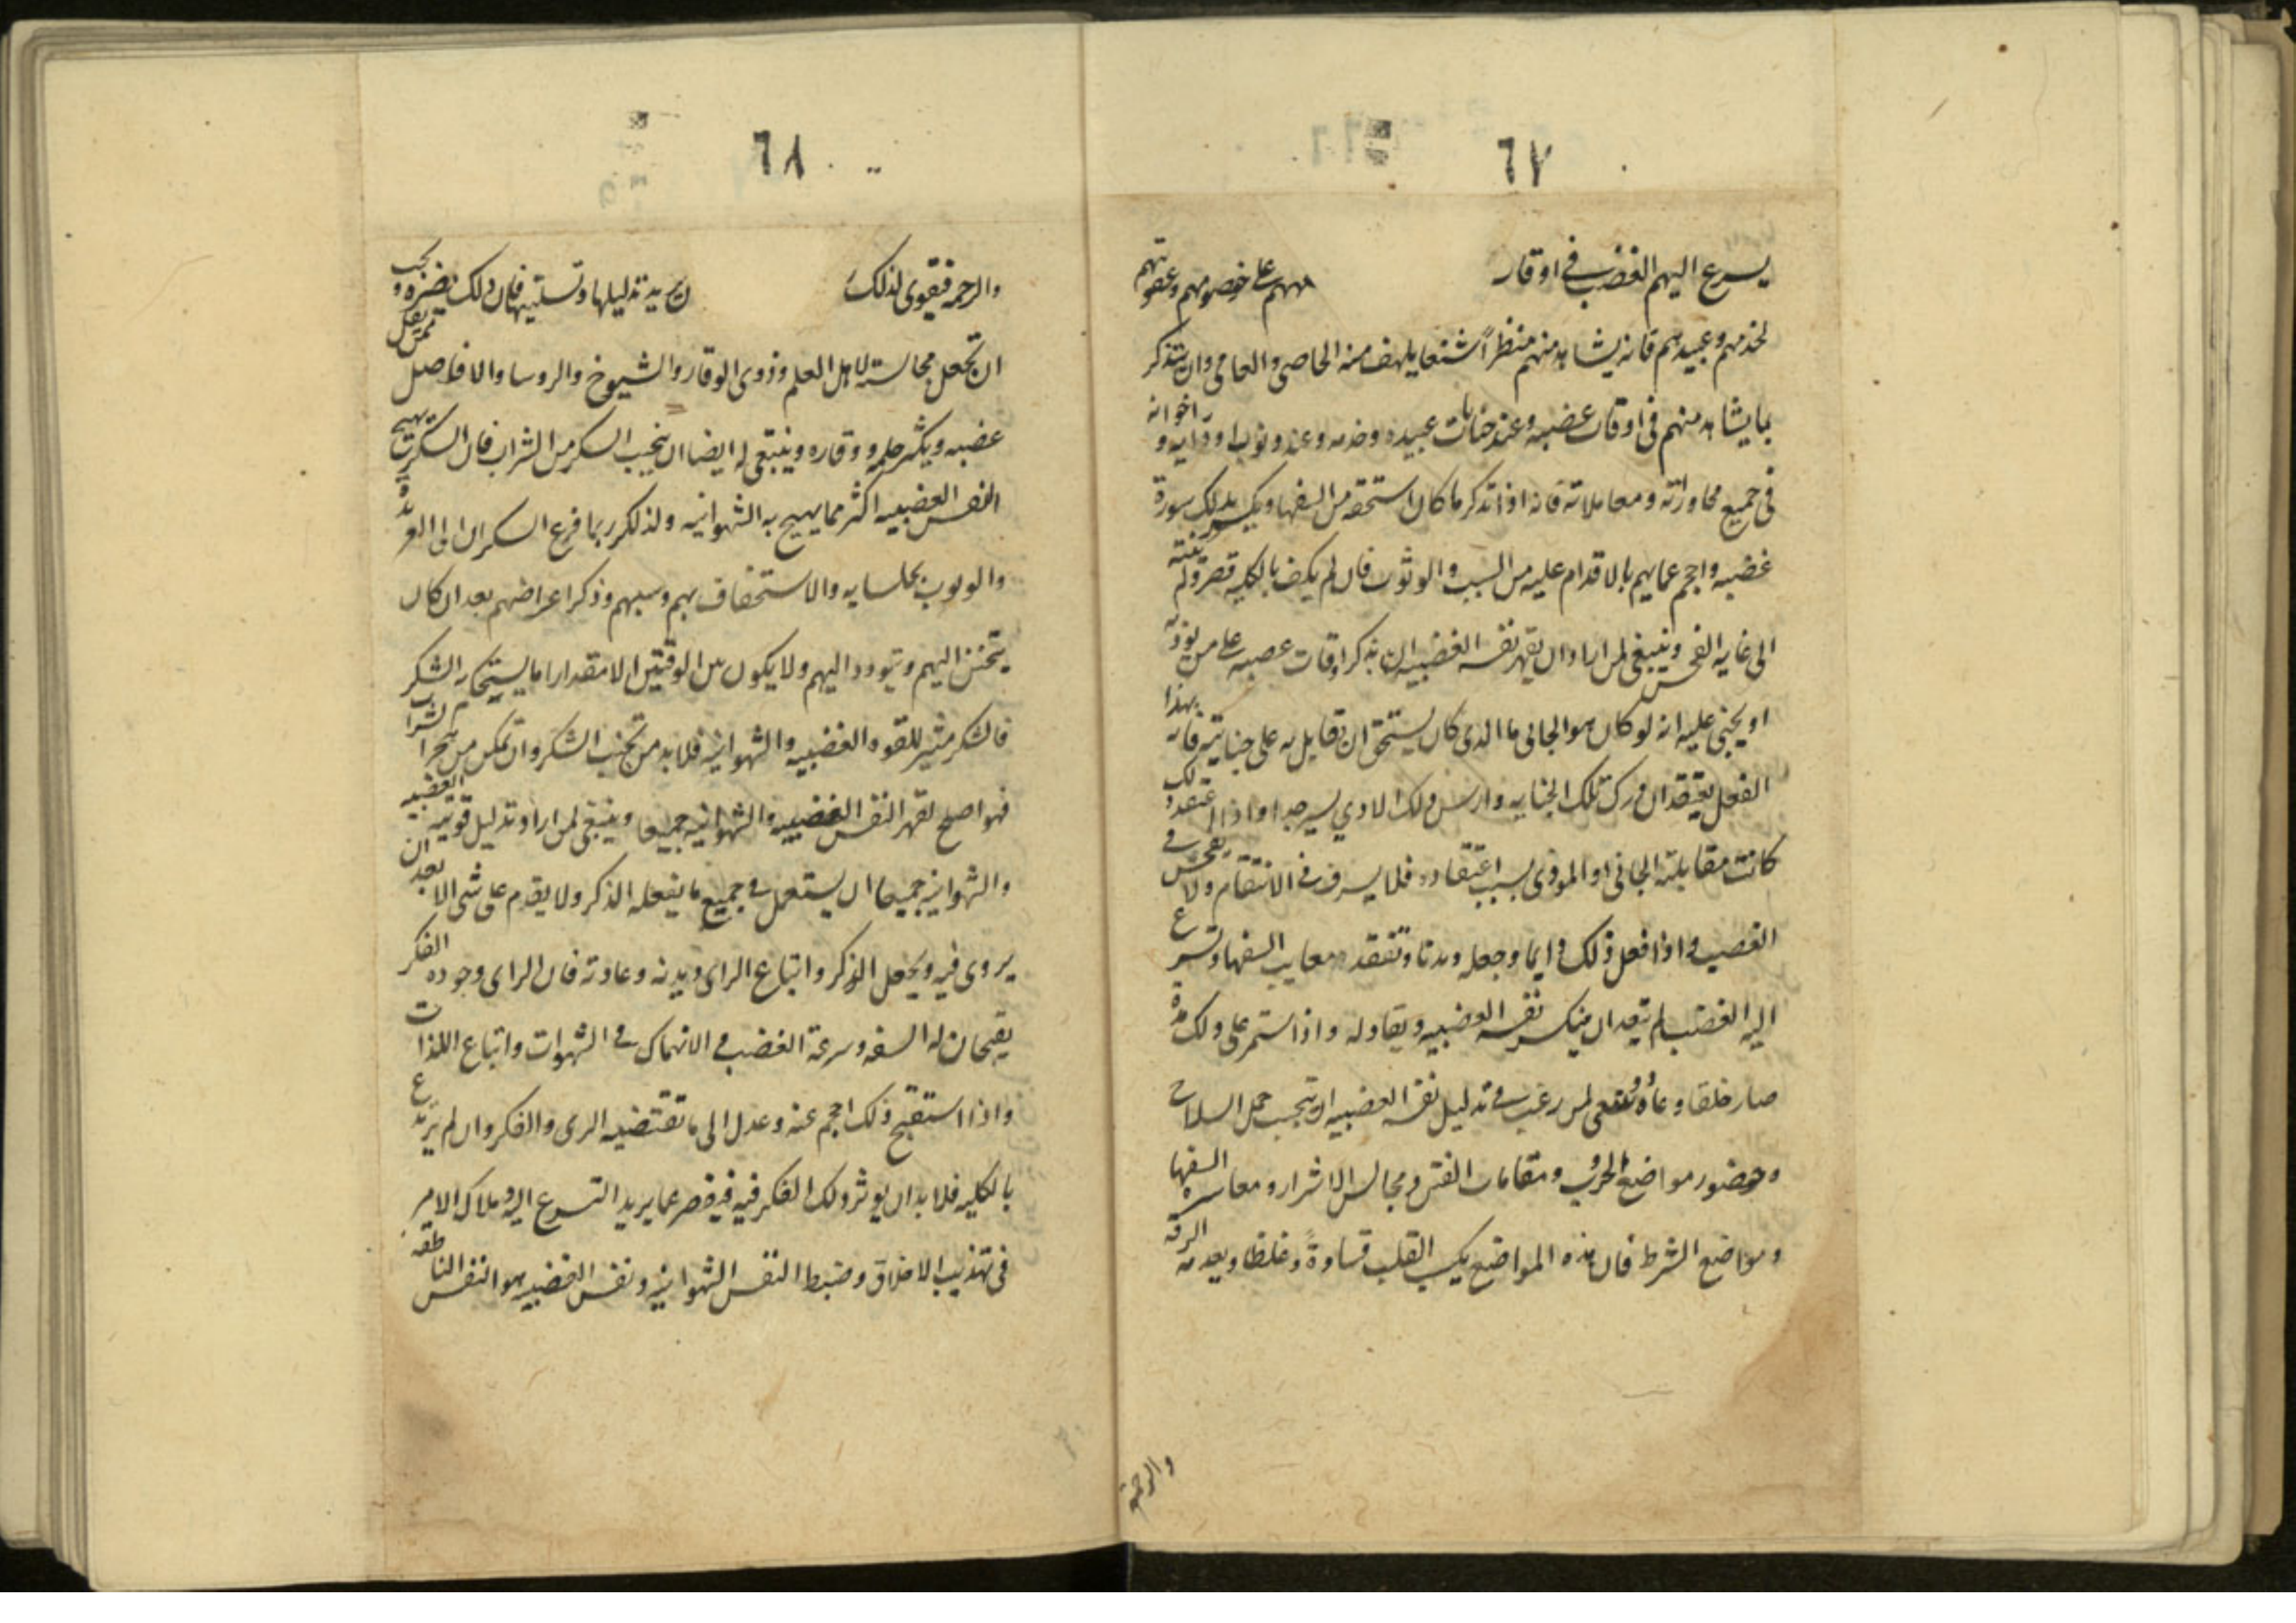 ٦٧
يسرع اليهم الغضب في اوقار مهم على خصومهم وعقوبتهم
لخدمهم وعبيدهم فانه يشاهد منهم منظراً شنعا يلهف منه الخاصي والعامي وان يتذكر
بما يشاهد منهم في اوقات غضبه وعند جنايات عبيده وخدمه وعند وثوبه اودايه واخوانه
في جميع محاوراته ومعاملاته فانه اذا تذكر ما كان استحقه من السفها ويكسر بذلك سورة
غضبه واحجم عما يهم بالاقدام عليه من السبب والوثوب فان لم يكف بالكليه قصر ولم ينته
الى غايه الفحش وينبغي لمن اراد ان يقهر نفسه الغضبيه ان يذكر اوقات عصبه على من يوذيه
او يجني عليه انه لو كان هو الجانى ما الذى كان يستحق ان تقابل به على جنايته فانه بهذا
الفعل يعتقد ان تلك الجنايه وارش ذلك الاذي يسير جدا واذا اعتقد ذلك
كانت مقابلته الجانى او الموذى بسبب اعتقاده فلا يسرف في الانتقام ولا يفحش في
الغضب واذا فعل ذلك دايما وجعله ديدنا وتفقد معايب السفها وتسرع
اليه الغضب لم يبعد ان ينكسر نفسه الغضبيه ويقاد له واذا استمر على ذلك مدة
صار خلقا وعاده وينبغى لمن رغب في تذليل نفسه الغضبيه ان يتجنب حمل السلاح
وحضور مواضع الحروب ومقامات الفتن ومجالس الاشرار ومعاشره السفها
ومواضع الشرط فان هذه المواضع يكسب القلب قساوة وغلظا ويعدمه الرقه
والرحمة
٦٨
والرحمه فيقوى لذلك ن يريد تذليلها وتسليتها فان ذلك يضره ويجب
ان تجعل مجالسته لاهل العلم وذوى الوقار والشيوخ والروسا والافاضل ممن يقل
غضبه ويكثر حلمه ووقاره وينبغى له ايضا ان يتجنب السكر من الشراب فان السكر يهيج
النفس الغضبيه اكثر مما يهيج به الشهوانيه ولذلك ربما فزع السكران الى العربدة
والوثوب بجلسايه والاستخفاف بهم وسبهم وذكر اعراضهم بعد ان كان
يتحنن اليهم ويتودد اليهم ولا يكون بين الوقتين الا مقدارا ما يستحكم به الشكر
فالشكر مثير للقوه الغضبيه والشهوانيه فلا بد من تجنب الشكر وان تمكن من هجر الشراب
فهو اصلح لقهر النفس الغضبيه والشهوانيه جميعا وينبغى لمن اراد تذليل قوتيه الغضبيه
والشهوانيه جميعا ان يستعمل في جميع ما يفعله الذكر ولا يقدم على شى الا بعد ان
يروى فيه ويجعل الذكر واتباع الراى ديدنه وعادته فان الراى وجوده الفكر
يقبحان له السفه وسرعة الغضب في الانهماك في الشهوات واتباع اللذات
واذا استقبح ذلك احجم عنه وعدل الى ما تقتضيه الرى والفكر وان لم يرتدع
بالكليه فلا بد ان يوثر ذلك الفكر فيه فيقصر عما يريد التسرع اليه وملاك الامر
في تهذيب الاخلاق وضبط النفس الشهوانيه ونفس الغضبيه هو النفس الناطقه